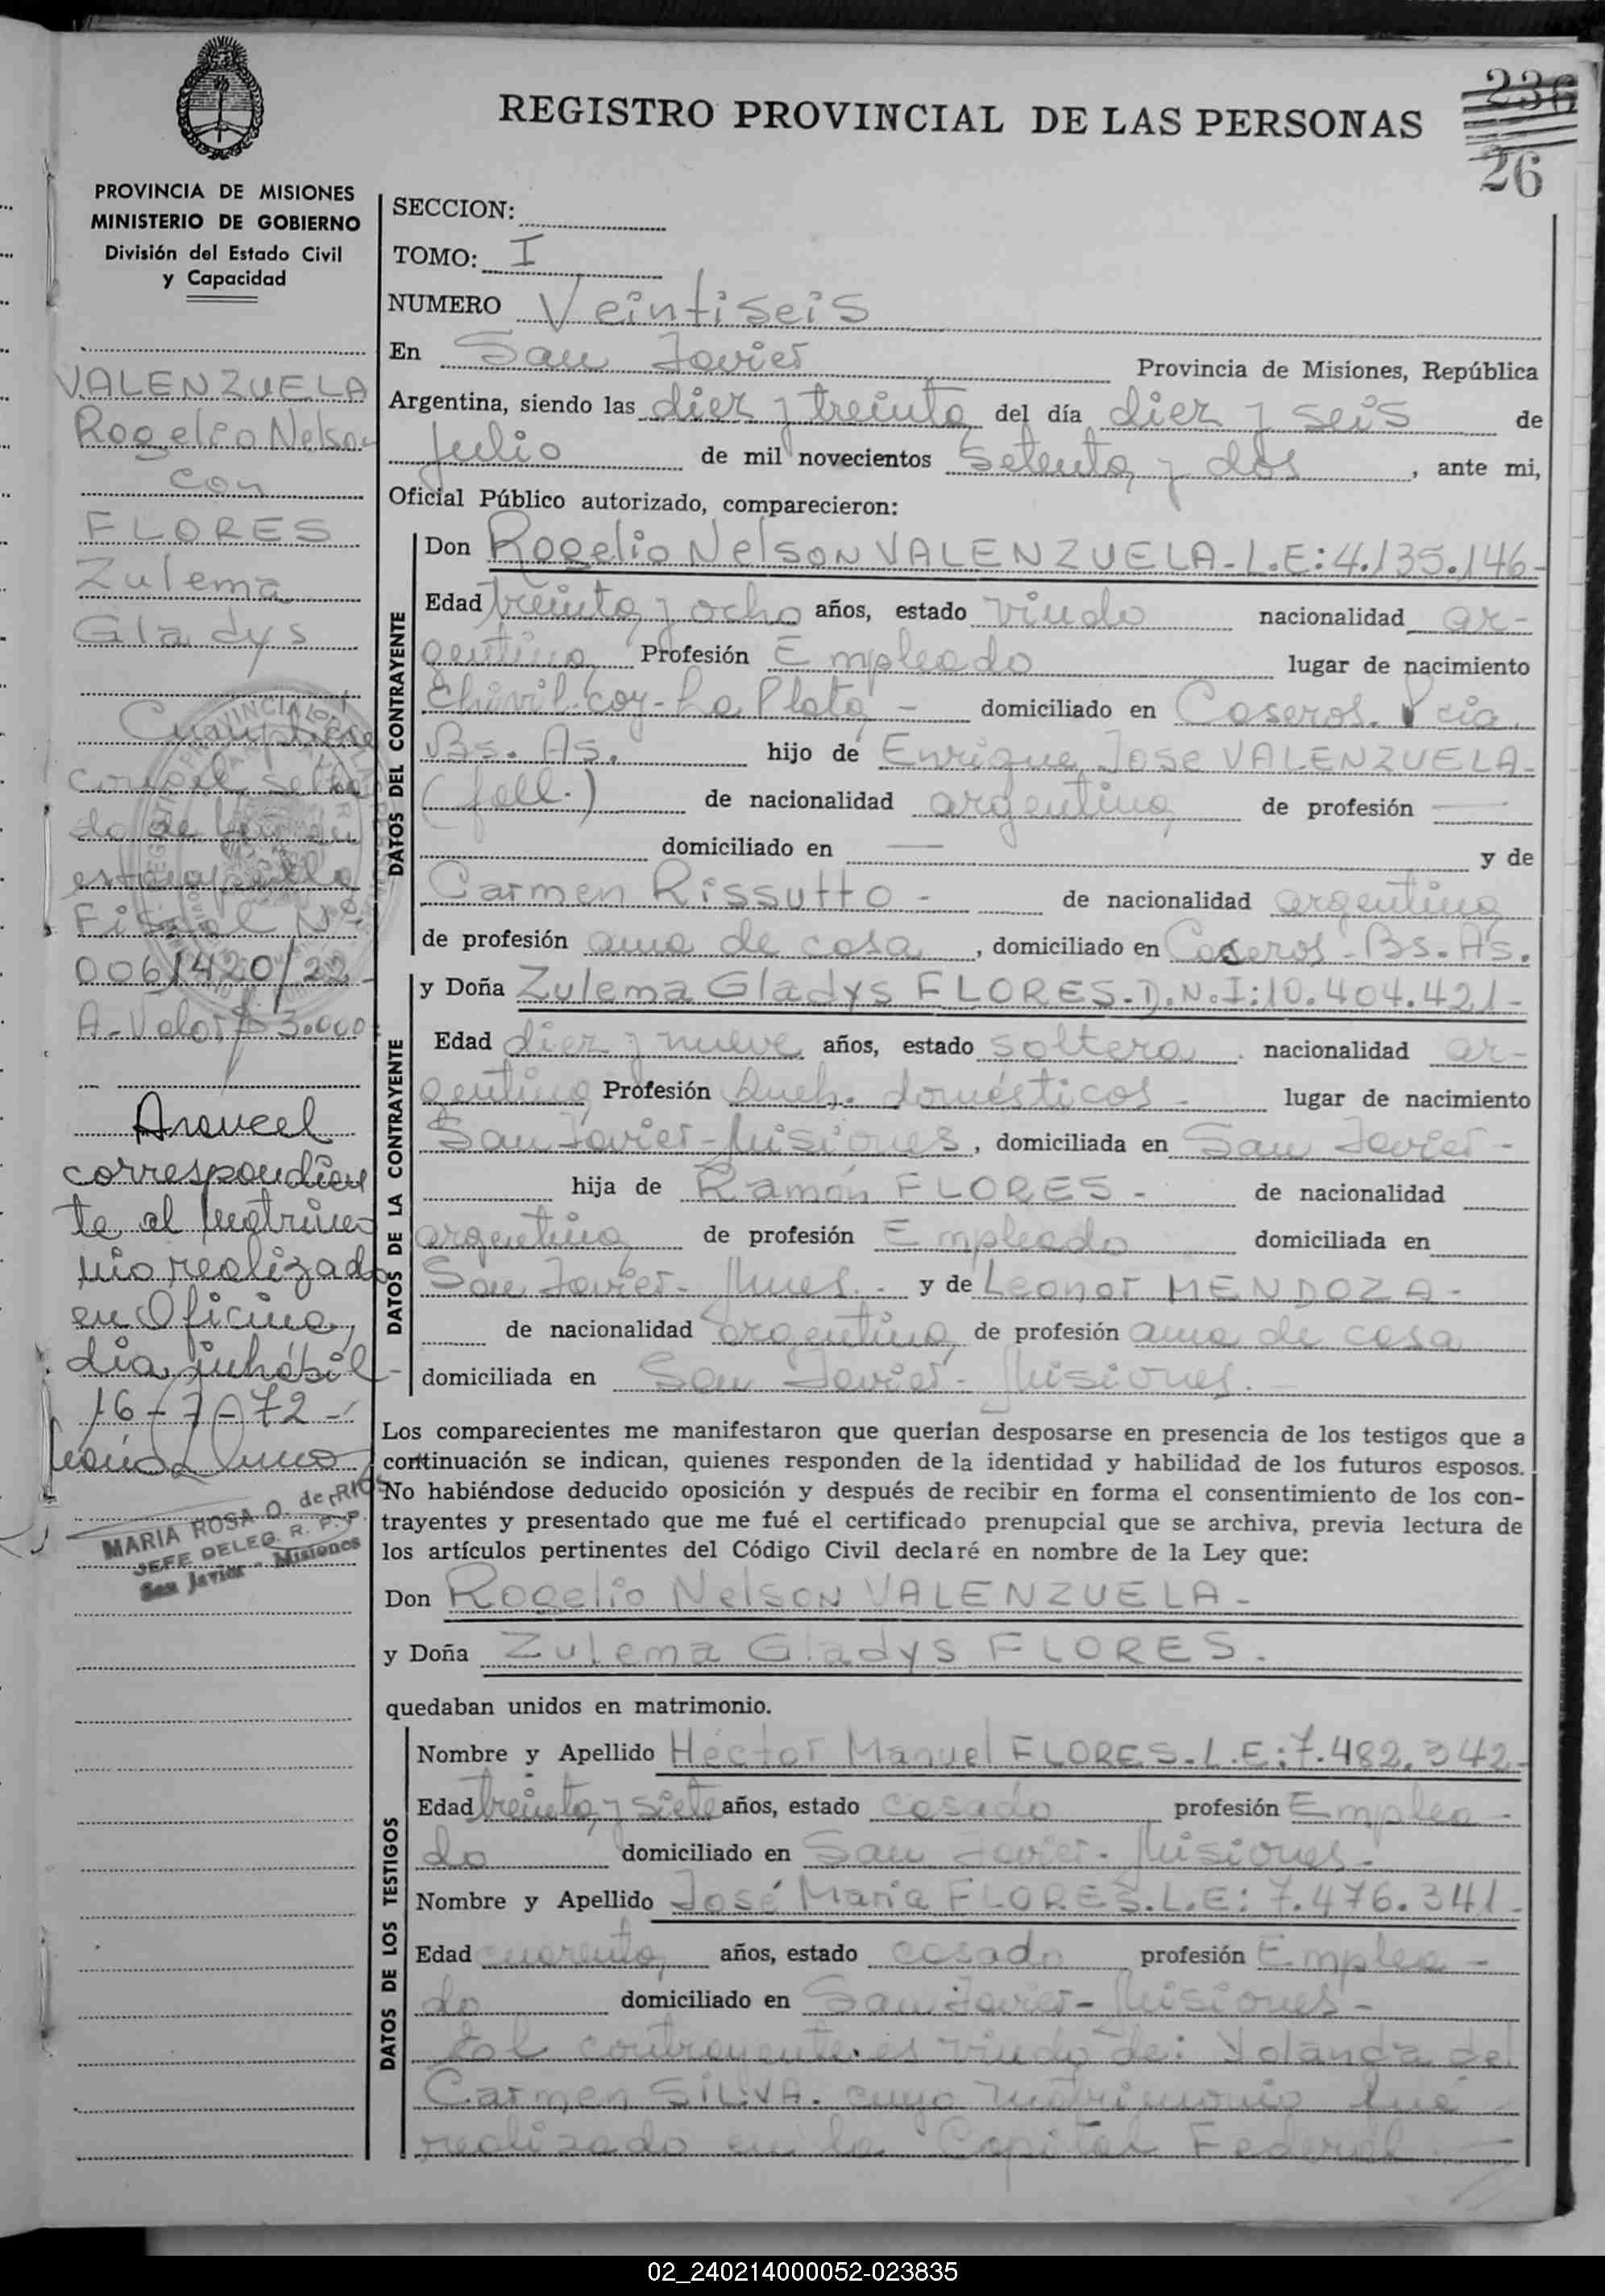 REGISTRO PROVINCIAL DE LAS PERSONAS
236
26
PROVINCIA DE MISIONES
MINISTERIO DE GOBIERNO
División del Estado Civil
y Capacidad
VALENZUELA
Rogelio Nelson
con
FLORES
Zulema
Gladys
Cumpliese
con el sella
do de Ley en
estampilla
Fiscal Nº
0061420/22-
A-Valor $ 3.000
Arancel
correspondien
te al matrimo-
nio realizado
en Oficina,
día inhábil-
16-7-72-
MARIA ROSA O. de RIOS
JEFE DELEG. R. P. P.
San Javier - Misiones
SECCION:
TOMO: I
NUMERO Veintiseis
En San Javier Provincia de Misiones, República
Argentina, siendo las diez y treinta del día diez y seis de
julio de mil novecientos setenta y dos, ante mi,
Oficial Público autorizado, comparecieron:
DATOS DEL CONTRAYENTE
Don Rogelio Nelson VALENZUELA-L.E:4.135.146-
Edad treinta y ocho años, estado viudo nacionalidad ar-
gentina Profesión Empleado lugar de nacimiento
Chivilcoy-La Plata- domiciliado en Caseros. Pcia.
Bs. As. hijo de Enrique Jose VALENZUELA-
(fall.) de nacionalidad argentina de profesión —
domiciliado en — y de
Carmen Rissutto- de nacionalidad argentina
de profesión ama de casa, domiciliado en Caseros-Bs. As.
DATOS DE LA CONTRAYENTE
y Doña Zulema Gladys FLORES-D.N.I:10.404.421-
Edad diez y nueve años, estado soltera nacionalidad ar-
gentina Profesión Queh. domésticos- lugar de nacimiento
San Javier-Misiones, domiciliada en San Javier-
hija de Ramón FLORES- de nacionalidad
argentina de profesión Empleado domiciliada en
San Javier-Mnes.- y de Leonor MENDOZA-
de nacionalidad argentina de profesión ama de casa
domiciliada en San Javier-Misiones.-
Los comparecientes me manifestaron que querían desposarse en presencia de los testigos que a
continuación se indican, quienes responden de la identidad y habilidad de los futuros esposos.
No habiéndose deducido oposición y después de recibir en forma el consentimiento de los con-
trayentes y presentado que me fué el certificado prenupcial que se archiva, previa lectura de
los artículos pertinentes del Código Civil declaré en nombre de la Ley que:
Don Rogelio Nelson VALENZUELA-
y Doña Zulema Gladys FLORES.
quedaban unidos en matrimonio.
DATOS DE LOS TESTIGOS
Nombre y Apellido Héctor Manuel FLORES-L.E:7.482.342-
Edad treinta y siete años, estado casado profesión Emplea-
do domiciliado en San Javier-Misiones-
Nombre y Apellido José María FLORES.L.E:7.476.341-
Edad cuarenta años, estado casado profesión Emplea-
do domiciliado en San Javier-Misiones-
El contrayente es viudo de: Yolanda del
Carmen SILVA. cuyo matrimonio fué
realizado en la Capital Federal
02_240214000052-023835